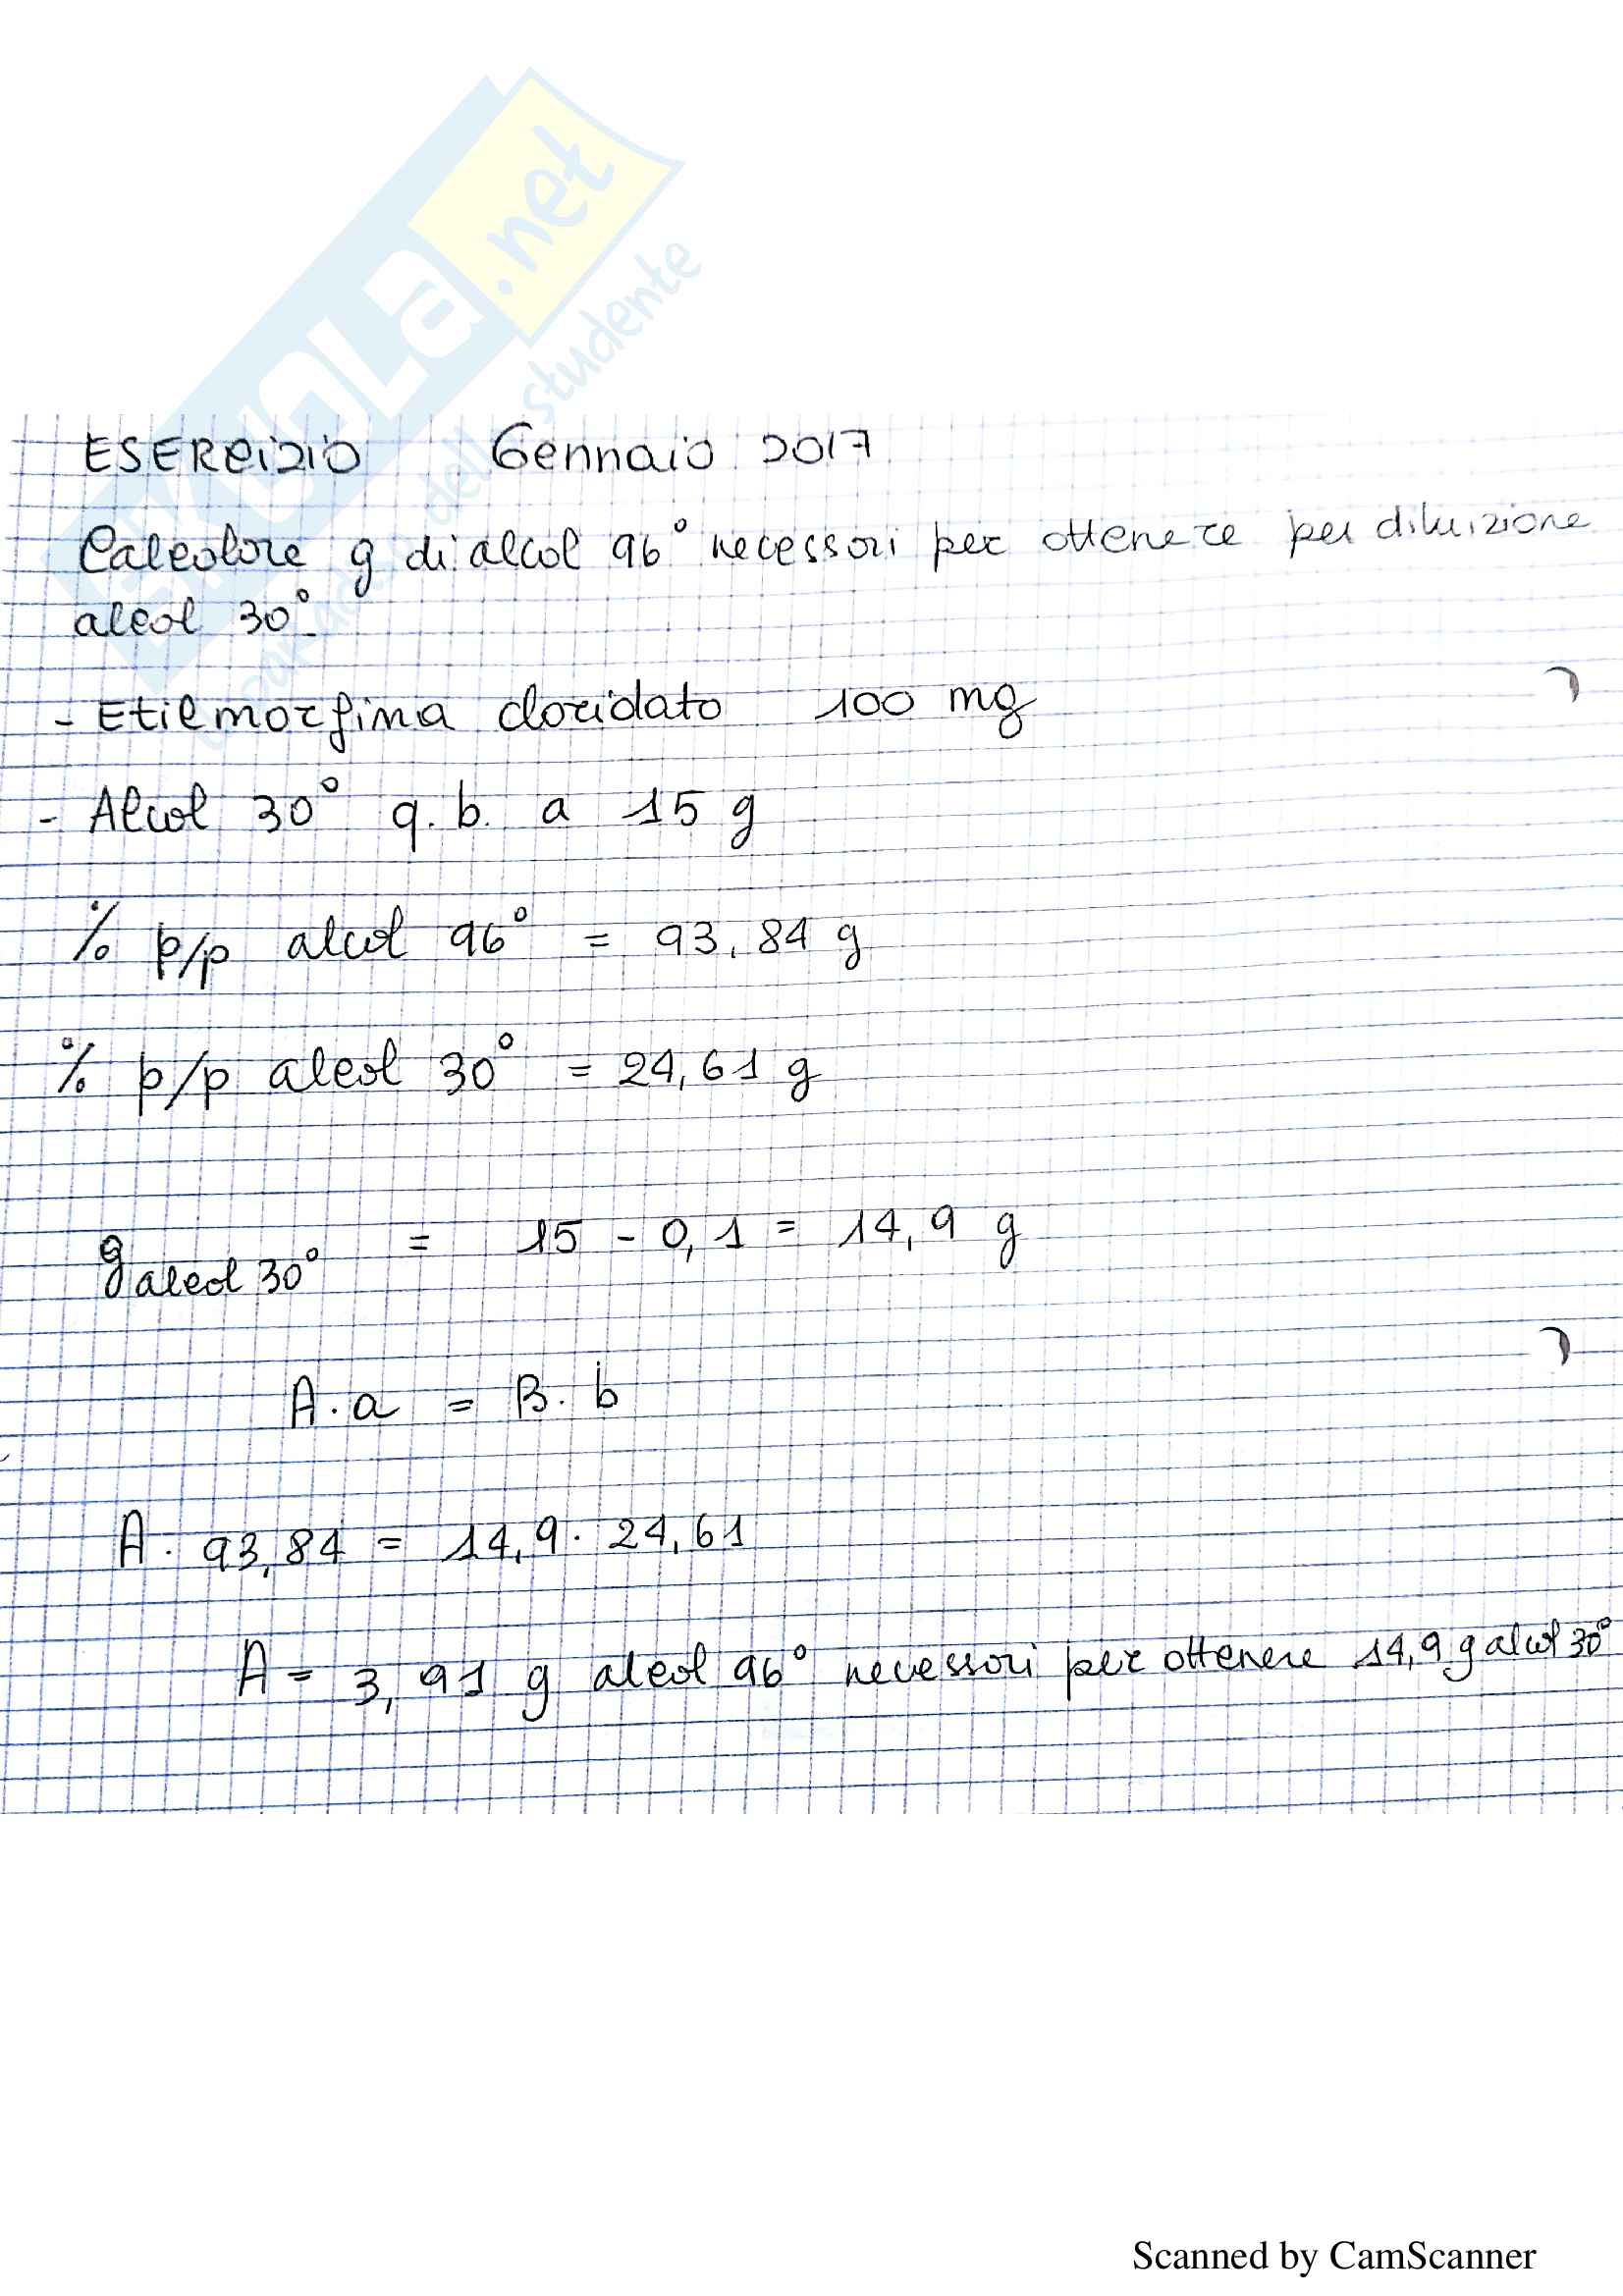 SKUOLA.net
il paradiso dello studente
ESERCIZIO Gennaio 2017
Calcolare g di alcol 96° necessari per ottenere per diluizione
alcol 30°.
- Etilmorfina cloridato 100 mg
- Alcol 30° q.b. a 15 g
% p/p alcol 96° = 93,84 g
% p/p alcol 30° = 24,61 g
g alcol 30° = 15 - 0,1 = 14,9 g
A · a = B · b
A · 93,84 = 14,9 · 24,61
A = 3,91 g alcol 96° necessari per ottenere 14,9 g alcol 30°
Scanned by CamScanner